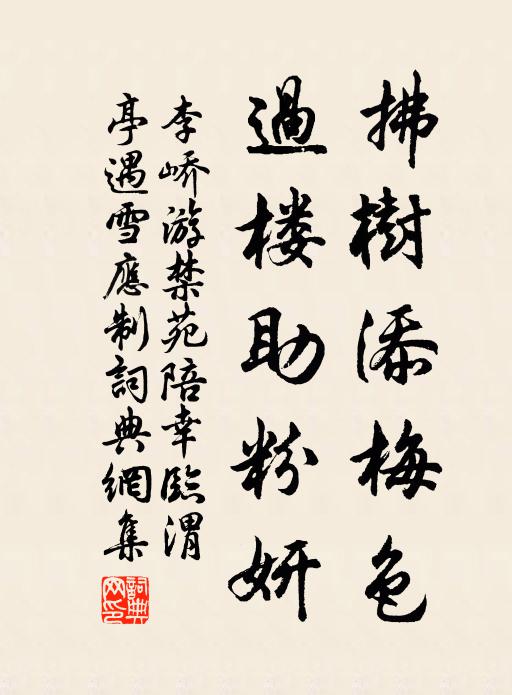 拂樹添梅色
過楼助粉妍
李峤游禁苑陪幸臨渭
亭遇雪應制詞典網集